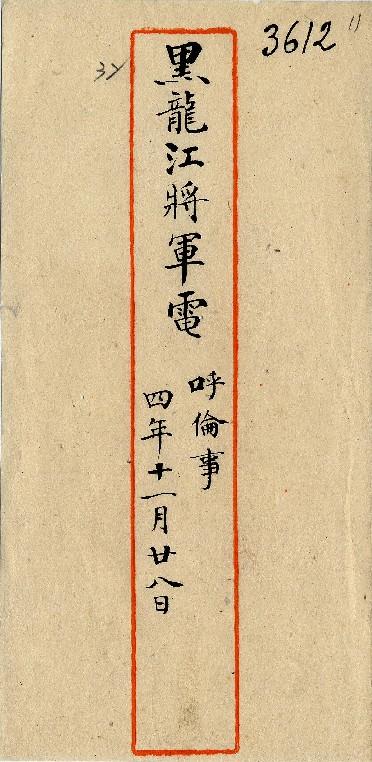 3612
黒龍江將軍電
呼倫事
四年十一月廿八日